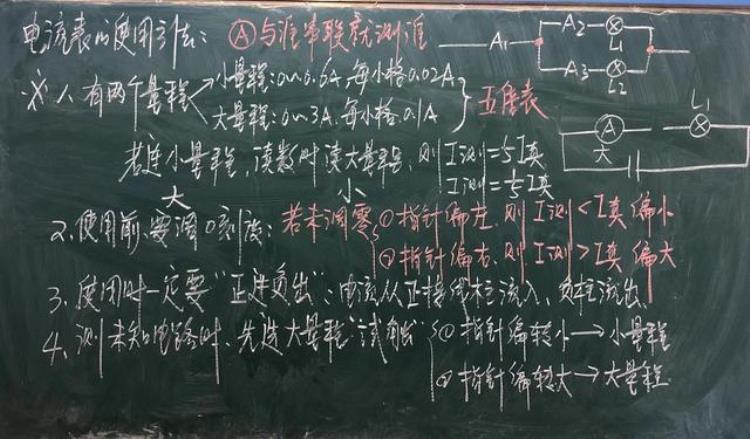 电流表的使用方法：Ⓐ与谁串联就测谁
※ 1. 有两个量程 小量程：0~0.6A，每小格0.02A
大量程：0~3A，每小格0.1A
五倍表
若选小量程，读数时读大量程，则I测=5I真
大 小 I测=1/5I真
2. 使用前，要调0刻度：若未调零 ①指针偏左，则I测<I真 偏小
②指针偏右，则I测>I真 偏大
3. 使用时一定要“正进负出”：电流从正接线柱流入，负柱流出。
4. 测未知电路时，先选大量程“试触” ①指针偏转小→小量程
②指针偏转大→大量程
A₁ A₂ L₁
A₃ L₂
A L₁
大